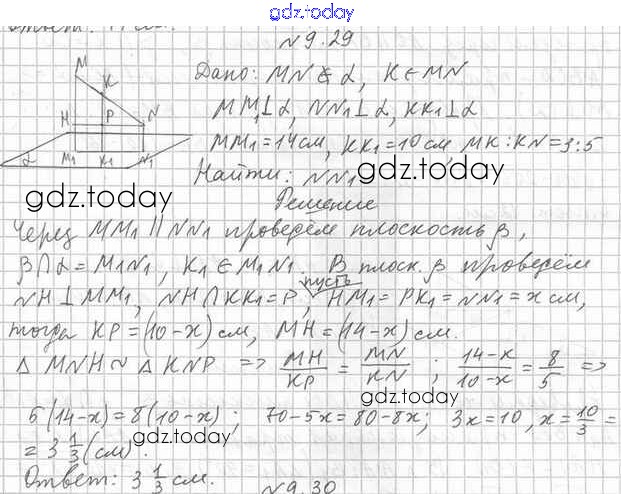 gdz.today
№9.29
Дано: MN ∉ α, K ∈ MN
MM₁ ⊥ α, NN₁ ⊥ α, KK₁ ⊥ α
MM₁ = 14 см, KK₁ = 10 см, MK : KN = 3 : 5
Найти: NN₁
M K H P N α M₁ K₁ N₁
gdz.today gdz.today
Решение
Через MM₁ || NN₁ проведём плоскость β,
β ∩ α = M₁N₁, K₁ ∈ M₁N₁. В плоск. β проведём
NH ⊥ MM₁, NH ∩ KK₁ = P, пусть HM₁ = PK₁ = NN₁ = x см,
тогда KP = (10 - x) см, MH = (14 - x) см.
Δ MNH ~ Δ KNP => MH/KP = MN/KN ; 14-x/10-x = 8/5 =>
5(14 - x) = 8(10 - x) ; 70 - 5x = 80 - 8x ; 3x = 10, x = 10/3 =
= 3 1/3 (см).
gdz.today gdz.today
Ответ: 3 1/3 см.
№9.30